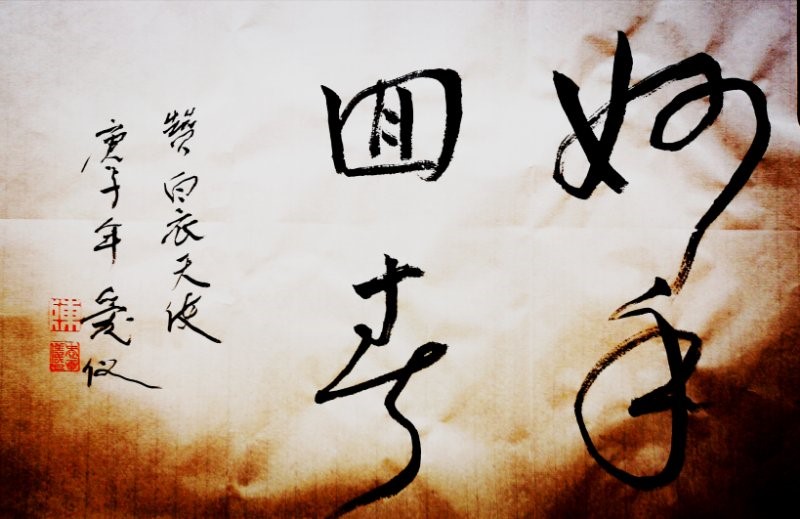 妙手
回春
赞白衣天使
庚子年